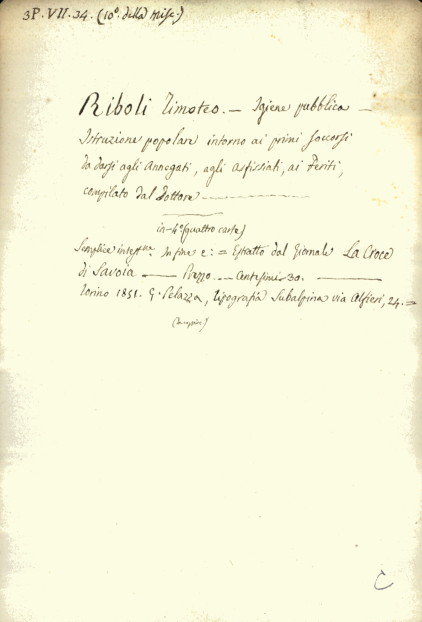 3P. VII. 34. (10°. della Misc.)
Riboli Timoteo. — Igiene pubblica —
Istruzione popolare intorno ai primi soccorsi
da darsi agli Annegati, agli Asfissiati, ai Feriti,
compilato dal Dottore —
in-4° (quattro carte)
Semplice intestne. In fine è: = Estratto dal Giornale La Croce
di Savoia — Prezzo — Centesimi 30. —
Torino 1851. G. Pelazza, Tipografia Subalpina via Alfieri, 24. =
C